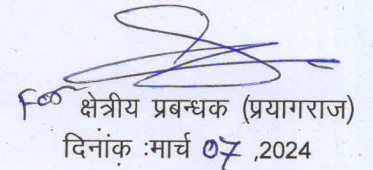 For क्षेत्रीय प्रबन्धक (प्रयागराज)
दिनांक :मार्च 07 ,2024